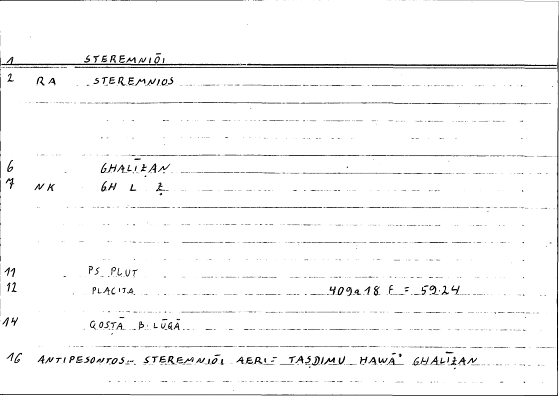 1 STEREMNIŌI
2 RA STEREMNIOS
6 GHALĪẒAN
7 NK GH L Ẓ
11 PS PLUT
12 PLACITA 409a18 F = 59.24
14 QOSTĀ B. LŪQĀ
16 ANTIPESONTOS... STEREMNIŌI AERI = TAṢDIMU HAWĀʾ GHALĪẒAN